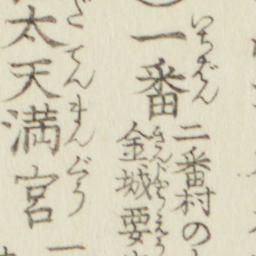 一番
いちばん
二番村の
金城要
きんじやうえう
太天満宮
だてんまんぐう
一